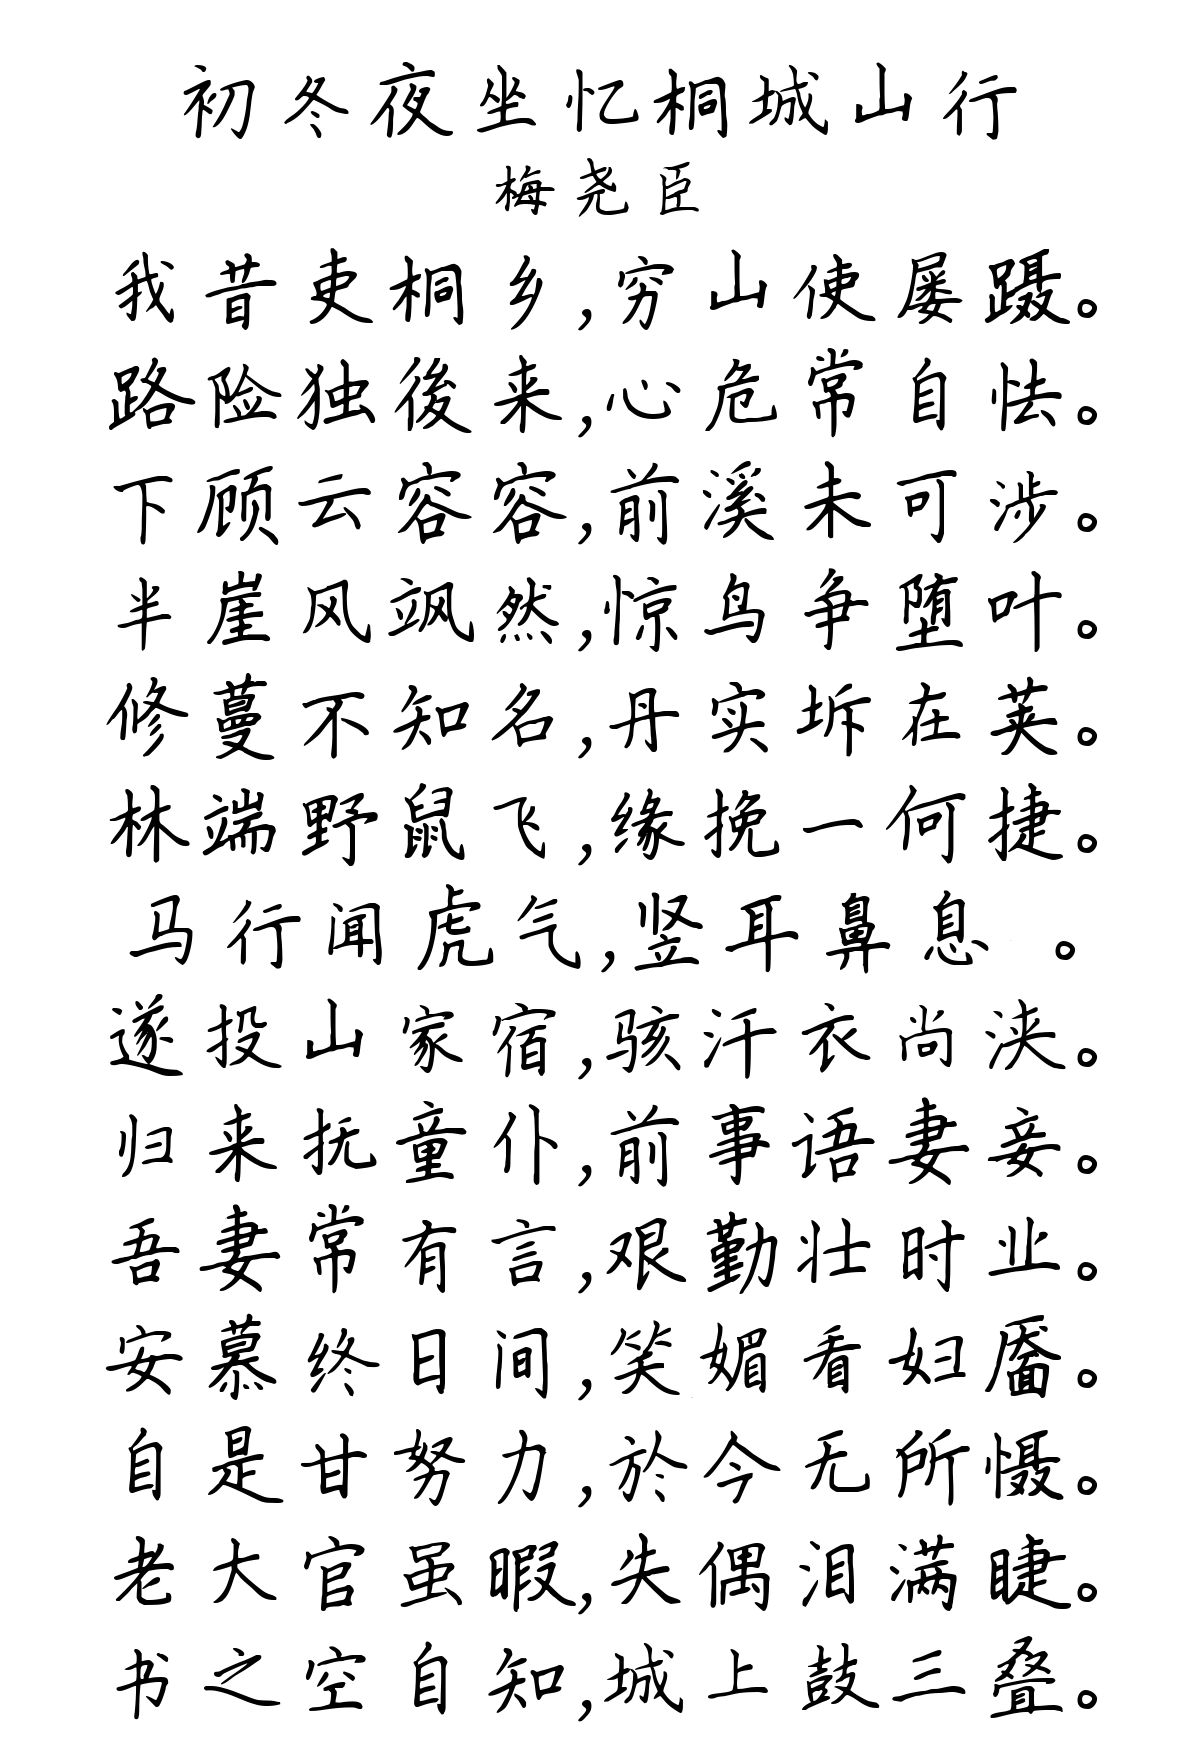 初冬夜坐忆桐城山行
梅尧臣
我昔吏桐乡,穷山使屡蹑。
路险独後来,心危常自怯。
下顾云容容,前溪未可涉。
半崖风飒然,惊鸟争堕叶。
修蔓不知名,丹实坼在荚。
林端野鼠飞,缘挽一何捷。
马行闻虎气,竖耳鼻息 。
遂投山家宿,骇汗衣尚浃。
归来抚童仆,前事语妻妾。
吾妻常有言,艰勤壮时业。
安慕终日间,笑媚看妇靥。
自是甘努力,於今无所慑。
老大官虽暇,失偶泪满睫。
书之空自知,城上鼓三叠。